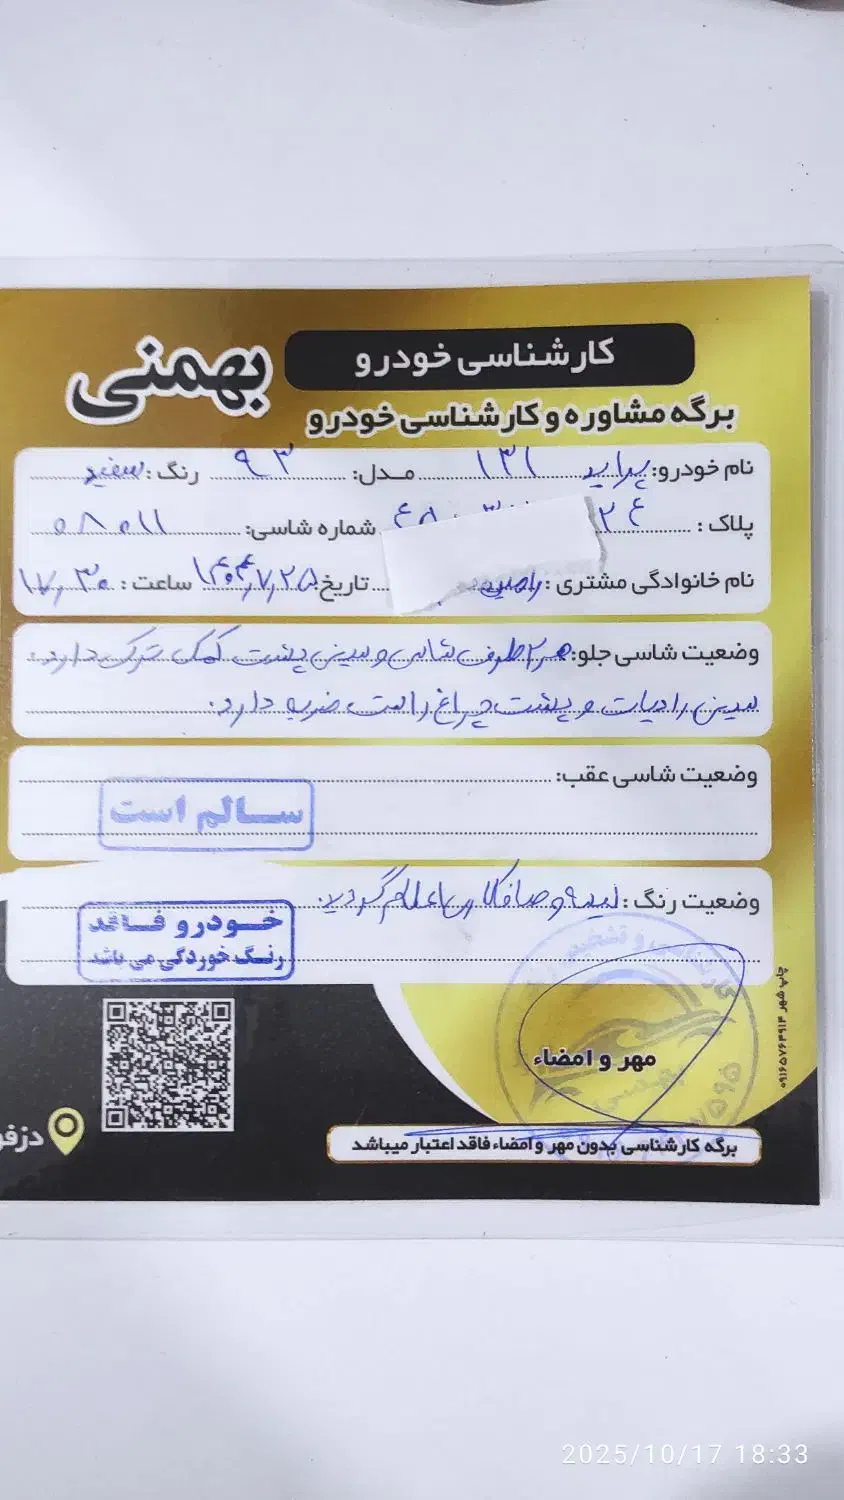 کارشناسی خودرو
بهمنی
برگه مشاوره و کارشناسی خودرو
نام خودرو: پراید ۱۳۱ مدل: ۹۳ رنگ: سفید
پلاک: شماره شاسی: ۰۸۰۱۱
نام خانوادگی مشتری: تاریخ: ۱۴۰۴,۷,۲۵ ساعت: ۱۷,۳۰
وضعیت شاسی جلو: هر ۲ طرف شاسی و سینی پشت کمک ترک دارد.
سینی رادیات و پشت چراغ راست ضربه دارد.
وضعیت شاسی عقب:
سالم است
وضعیت رنگ: لیسه و صافکاری اعلام گردید.
خودرو فاقد
رنگ خوردگی می باشد
مهر و امضاء
چاپ شهر ۰۹۱۶۵۷۶۴۹۱۴
دزفو
برگه کارشناسی بدون مهر و امضاء فاقد اعتبار میباشد
2025/10/17 18:33